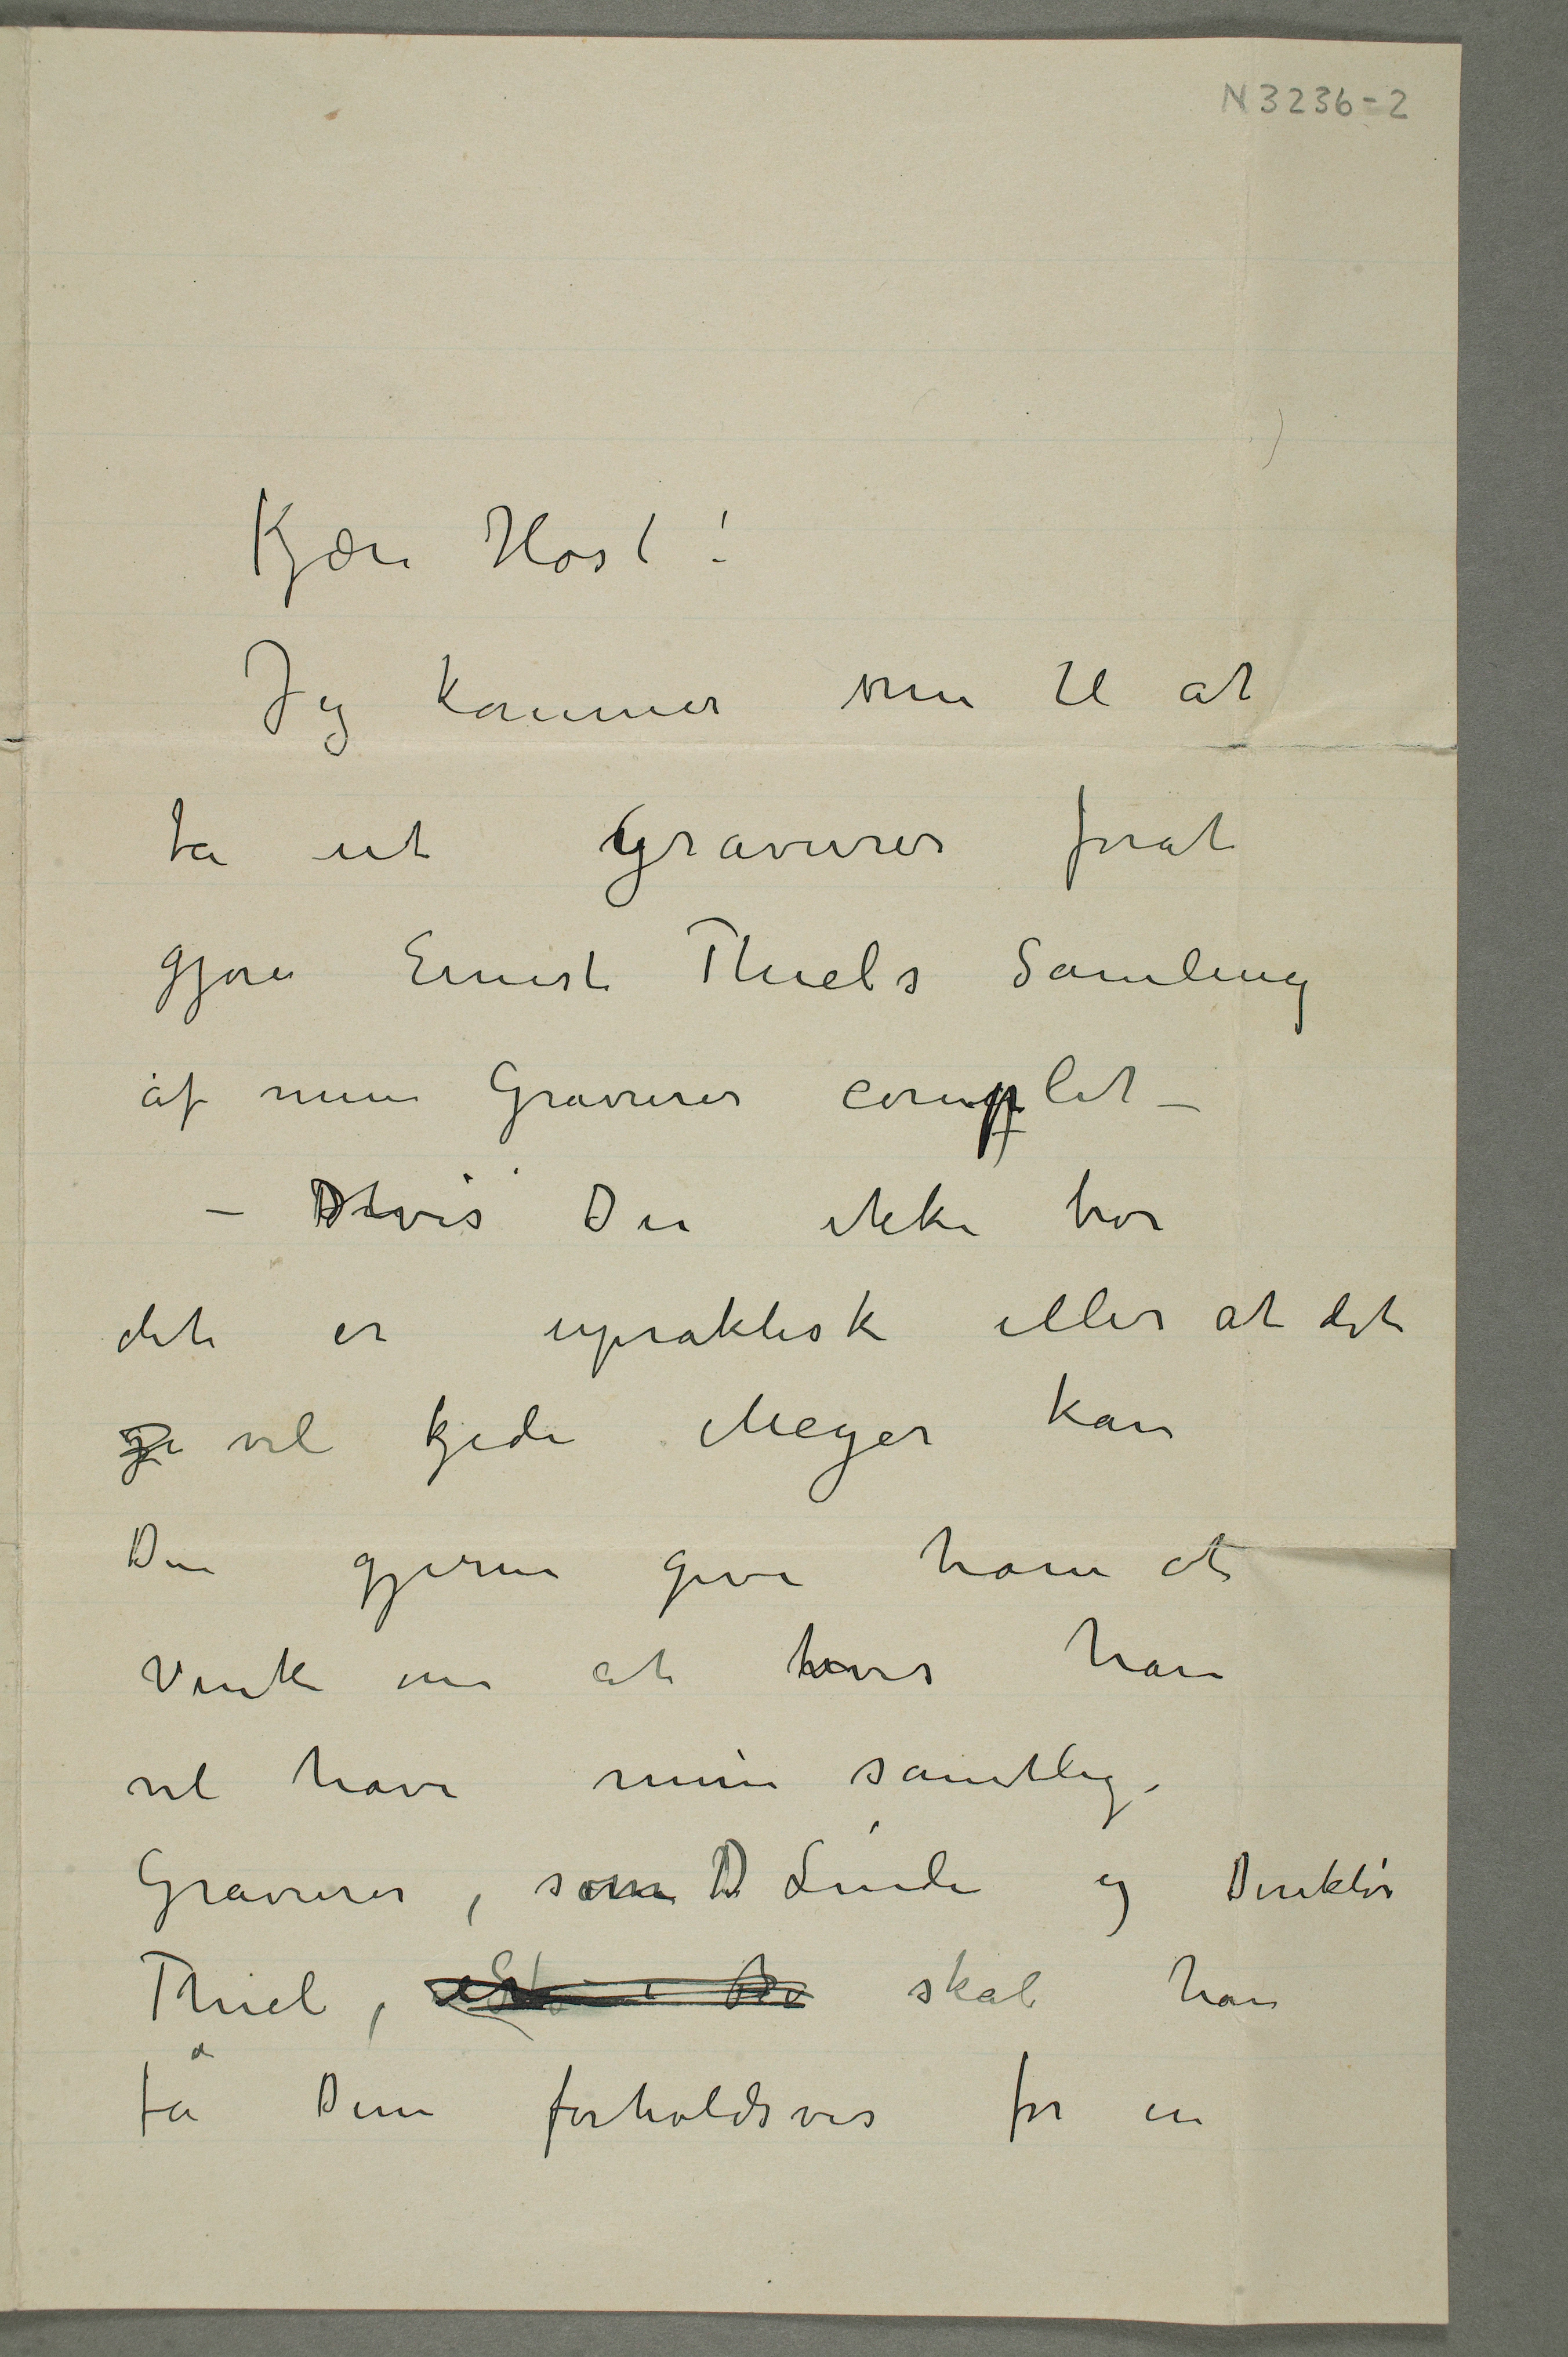 N 3236-2
Kjære Høst!
Jeg kommer nu til at
ta ut Gravurer forat
gjøre Ernest Thiels Samling
af mine Gravurer complet –
– Hvis De ikke tror
det er upraktisk eller at det
vil kjede Meyer kan
De gjerne give ham et
Vink om at hvis han
vil have mine samtlige
Gravurer, som D Linde og Direktør
Thiel, skal han
få dem forholdsvis for en